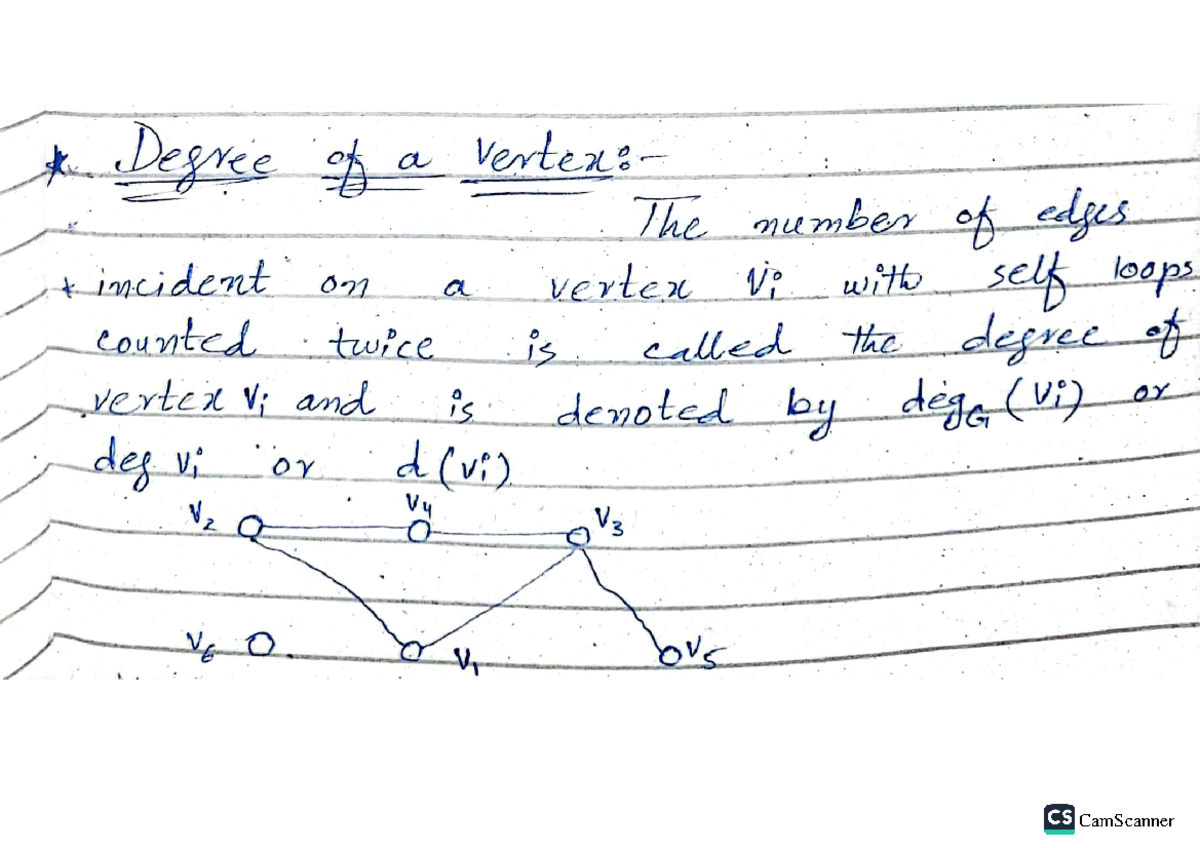 * Degree of a Vertex:-
The number of edges
incident on a vertex Vi with self loops
counted twice is called the degree of
vertex Vi and is denoted by degG (Vi) or
deg Vi or d (Vi)
V2 V4 V3
V6 V1 V5
CS CamScanner